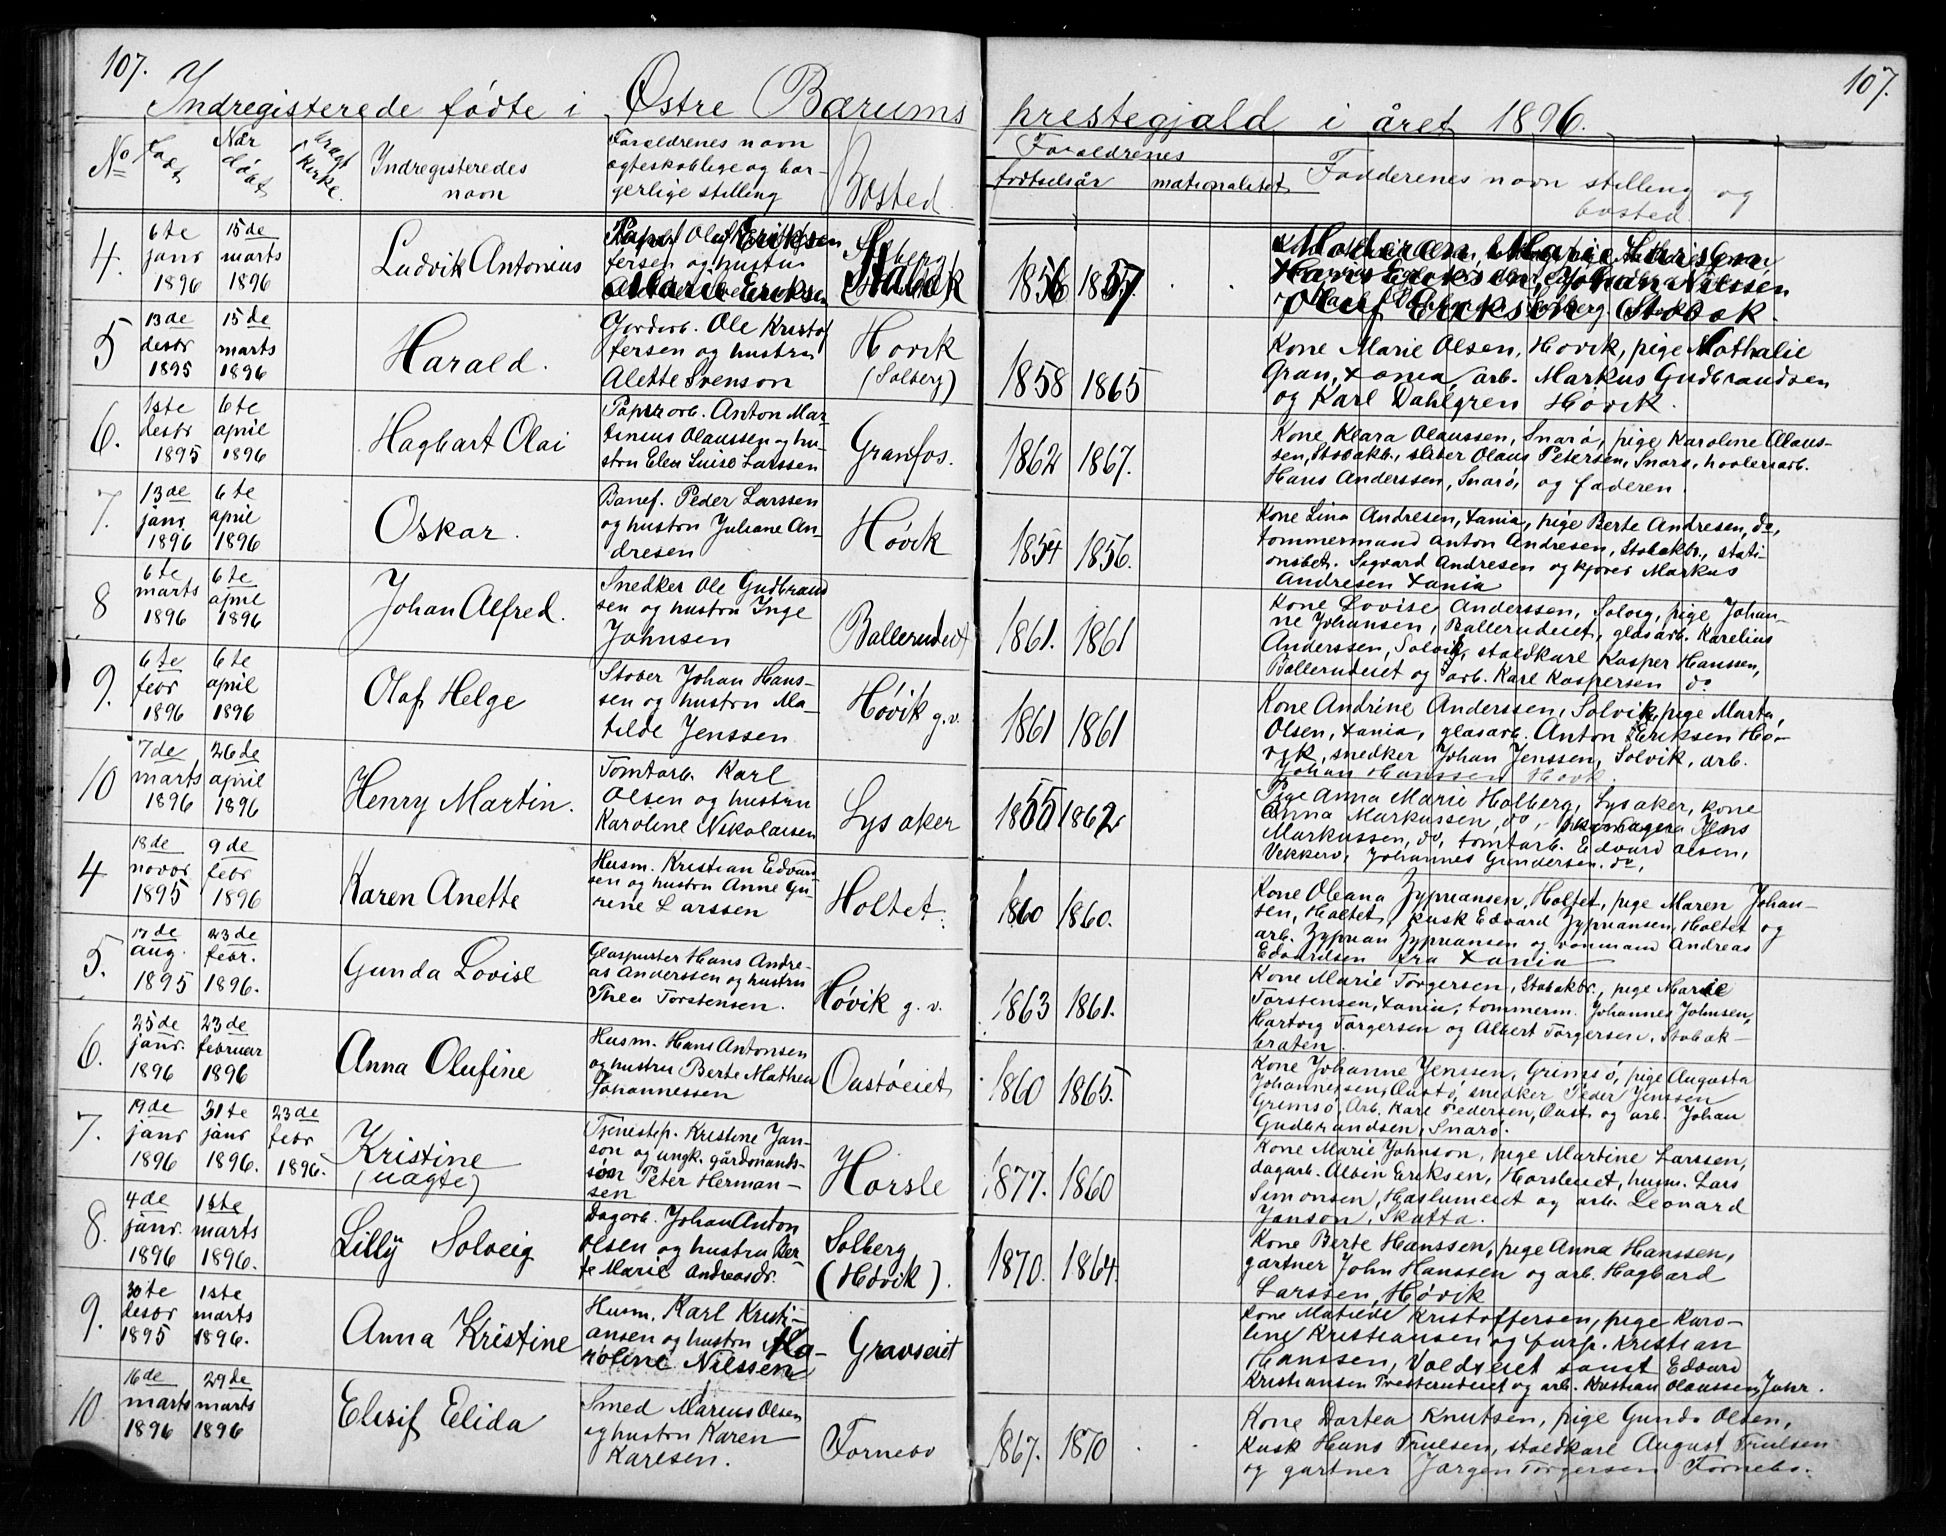 107.
107.
Indregisterede fødte i Østre Bærums prestegjæld i året 1896.
No
Født
Når døbt
bragt i kirke.
Indregisteredes navn
Forældrenes navn
ægteskablige og bor-
gerlige stilling
Bosted.
Forældrenes
fødselsår
nationalitet
Fadderenes navn stilling og
bosted.
4.
6te janr 1896
15de marts 1896
Ludvik Antonius
Eriksen
Marie Eriksen
Stabæk
1856 1857.
Moderen, Marie Larisen
Hans Eriksen, Johan Nilssen
Oluf Eriksen Stabæk.
5
13de desbr 1895
15de marts 1896
Harald.
Gordarb. Ole Kristof
fersen og hustru
Alette Svenson
Høvik
(Solberg)
1858 1865
Kone Marie Olsen, Høvik, pige Nathalie
Gran, Xania, arb. Markus Gudbrandsen
og Karl Dahlgren Høvik.
6.
1ste desbr 1895
6te april 1896
Hagbart Olai
Papirarb. Anton Mar-
tinius Olaussen og hu-
stru Elen Luise Larssen
Granfos.
1862 1867.
Kone Klara Olaussen, Snarø, pige Karoline Olaus-
sen, Stabækb., sliber Olaus Petersen, Snarø, høvleriarb.
Hans Anderssen, Snarø, og faderen.
7.
13de janr 1896
6te april 1896
Oskar.
Banef. Peder Larssen
og hustru Juliane An-
dresen
Høvik
1854 1856.
Kone Lina Andresen, Xania, pige Berte Andresen, do,
tømmermand Anton Andresen, Stabækbr., stati-
onsbet. Sigvard Andresen og kjører Markus
Andresen Xania
8
6te marts 1896
6te april 1896
Johan Alfred.
Snedker Ole Gudbrand
sen og hustru Inge
Johnsen
Ballerudeiet
1861. 1861
Kone Lovise Anderssen, Solvig, pige Johan-
ne Johansen, Ballerudeiet, glasarb. Karelius
Anderssen, Solvik, staldkarl Kasper Hanssen,
Ballerudeiet og arb. Karl Kaspersen do
9.
6te febr 1896
6te april 1896
Olaf Helge
Støber Johan Hans-
sen og hustru Ma-
tilde Jenssen
Høvik g.v.
1861 1861
Kone Andrine Anderssen, Solvik, pige Marta
Olsen, Xania, glasarb. Anton Eriksen Hø-
vik, snedker Johan Jenssen, Solvik, arb.
Johan Hanssen Høvik.
10
7de marts 1896
26de april 1896
Henry Martin.
Tomtarb. Karl
Olsen og hustru
Karoline Nikolaisen
Lysaker
1855 1862
Pige Anna Marie Holberg, Lysaker, kone
Anna Markussen, do, Jens
Markussen, do, tomtarb. Edvard Olsen,
Vækkerø, Johannes Gundersen. do,
4
18de novbr 1895
9de febr 1896
Karen Anette
Husm. Kristian Edvard
sen og hustru Anne Gu-
rine Larssen
Holtet.
1860 1860.
Kone Oleana Zypriansen, Holtet, pige Maren Johan-
sen, Holtet, kusk Edvard Zypriansen, Holtet og
arb. Zyprian Zypriansen og vonmand Andreas
Edvardsen fra Xania
5.
17de aug. 1895
23de febr. 1896.
Gunda Lovise
Glaspuster Hans Andre-
as Anderssen og hustru
Thea Torstensen.
Høvik g. v.
1863 1861.
Kone Marie Torgersen, Stabækbr., pige Marie
Torstensen, Xania, tømmerm. Johannes Johnsen,
Hartvig Torgersen og Albert Torgersen, Stabæk-
bråten.
6.
25de janr. 1896
23de februar 1896
Anna Olufine
Husm. Hans Antonsen
og hustru Berte Mathea
Johannessen
Oustøeiet
1860 1865.
Kone Johanne Jenssen, Grimsø, pige Augusta
Johannessen, Oustø, snedker Peder Jenssen
Grimsø, Arb. Karl Pedersen, Oust. og arb. Johan
Gudbrandsen, Snarø.
7.
19de janr 1896
31te janr 1896.
23de febr 1896.
Kristine
(uægte)
Tjenestep. Kristine Jan-
son og ungk. gårdmands-
søn Peter Herman-
sen
Horsle
1877. 1860
Kone Marie Johnson, pige Martine Larssen,
dagarb. Albin Eriksen, Horsleiet, husm. Lars
Simonsen, Haslumeiet og arb. Leonard
Janson, Skutta.
8.
4de janr. 1896
1ste marts 1896.
Lilly Solveig
Dagarb. Johan Anton
Olsen og hustru Ber-
te Marie Andreasdr.
Solberg
(Høvik).
1870. 1864.
Kone Berte Hanssen, pige Anna Hanssen,
gartner John Hanssen og arb. Hagbard
Larssen, Høvik
9.
30te desbr 1895
1ste marts 1896.
Anna Kristine
Husm. Karl Kristi-
ansen og hustru Ka-
roline Nilssen
Gravseiet
Kone Matilde Kristoffersen, pige Karo-
line Kristiansen og forp. Kristian
Hanssen, Voldseiet samt Edvard
Kristiansen Presterudeiet og arb. Kristian Olaussen, Johr.
10
16de marts 1896
29de marts 1896
Elisif Elida
Smed Marius Olsen
og hustru Karen
Karlsen.
Fornebo
1867. 1870
Kone Dortea Knutsen, pige Gunda Olsen,
Kusk Hans Trulsen, staldkarl August Trulsen
og gartner Jørgen Torgersen Fornebo.